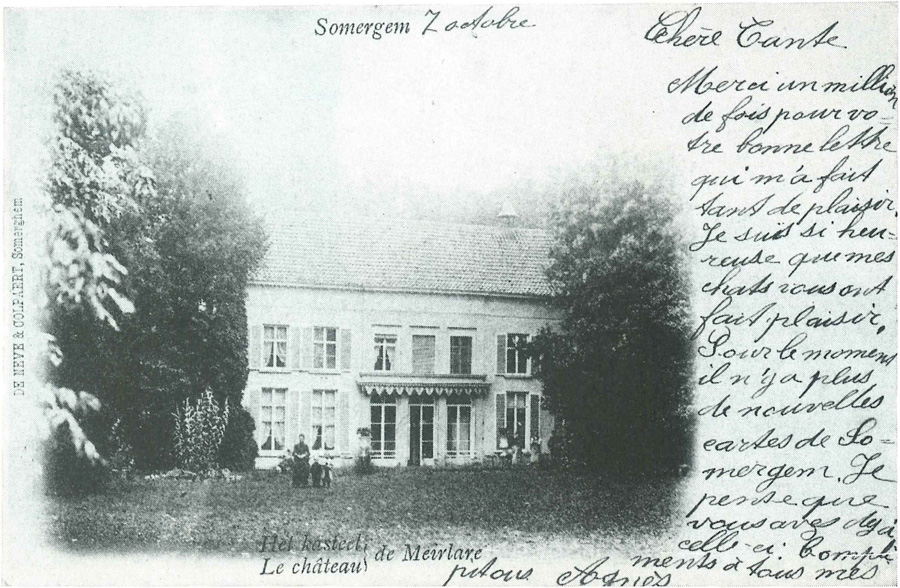 Somergem 7 octobre
Chère Tante
Merci un million
de fois pour vo-
tre bonne lettre
qui m'a fait
tant de plaisir.
Je suis si heu-
reuse que mes
chats vous ont
fait plaisir.
Pour le moment
il n'y a plus
de nouvelles
cartes de So-
mergem. Je
pense que
vous avez déjà
celle-ci. Compli-
ments à tous mes
petous Agnès
DE NEVE & COLPAERT, Somerghem
Het kasteel
Le château
de Meirlare